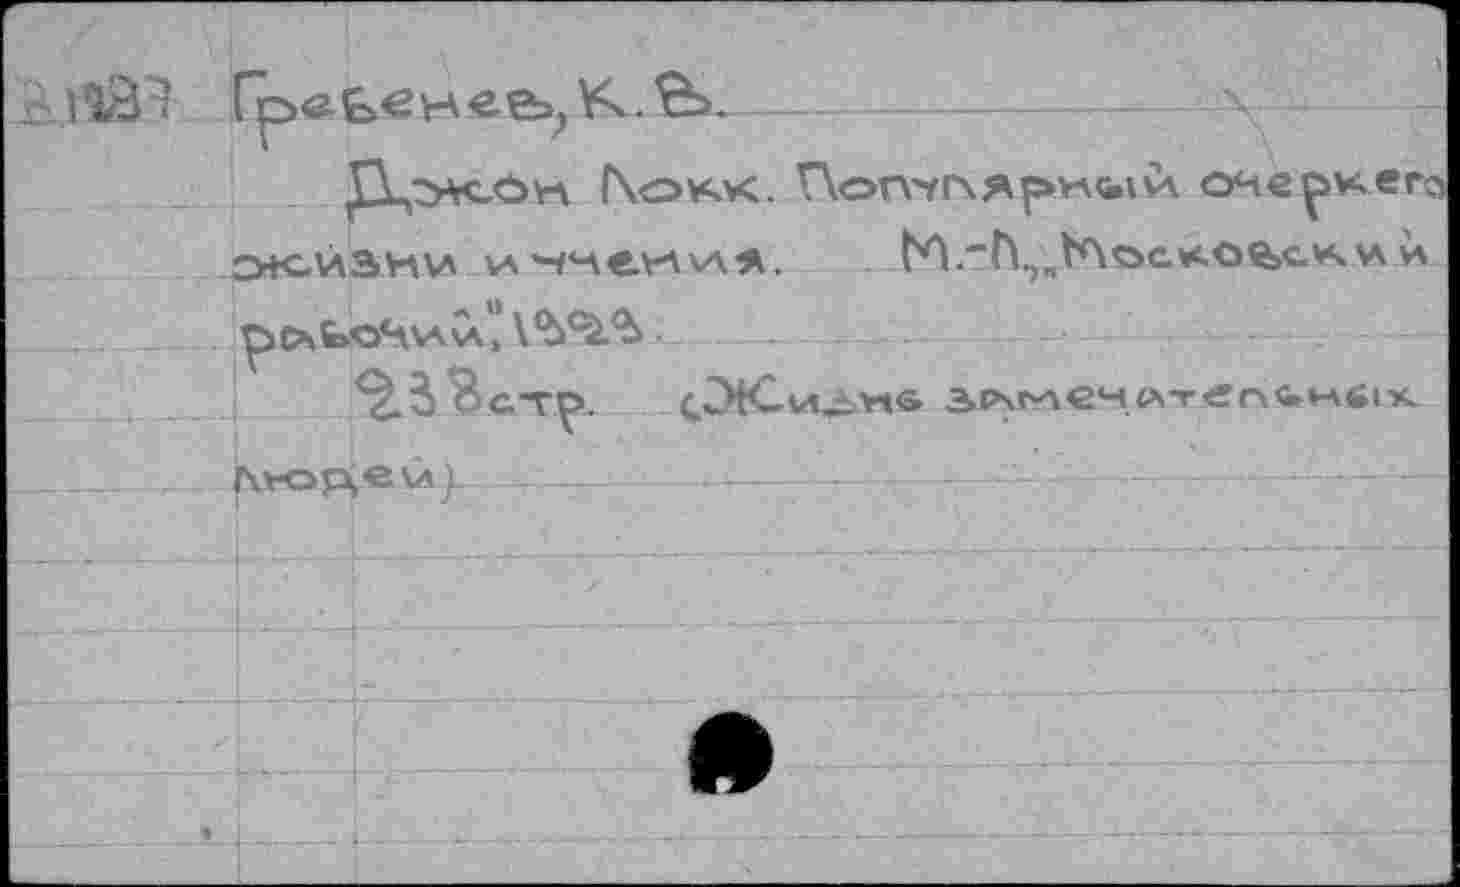 Гребенев, К. В.
Джон Локк. Популярный очерк его
жизни и учения. М.-Л., "Московский
рабочий", 1929.
стр. (Жизнь замечательных
людей)